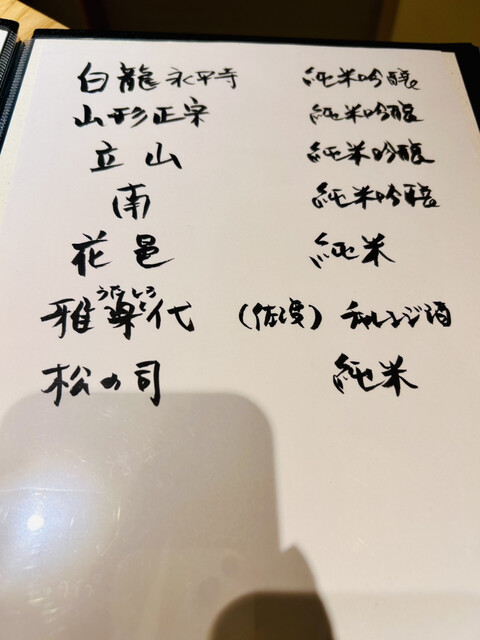 白龍 永平寺 純米吟醸
山形正宗 純米吟醸
立山 純米吟醸
南 純米吟醸
花邑 純米
うたしろ
雅楽代 (佐渡) チャレンジ酒
松の司 純米